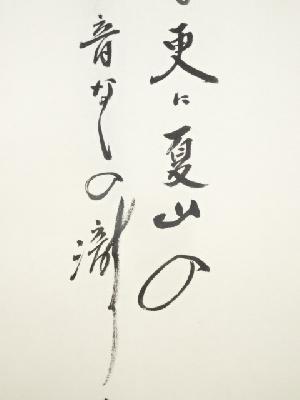 更に夏山の
音なしの瀧